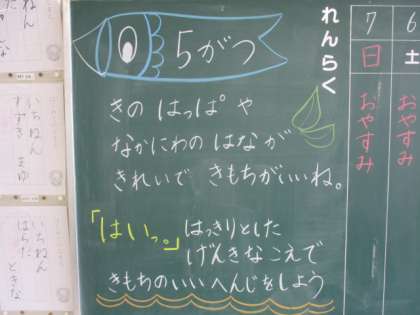 5がつ
きの はっぱ や
なかにわの はな が
きれいで きもちがいいね。
「はいっ。」 はっきりとした
げんきな こえで
きもちの いい へんじをしよう
れんらく
7
日
おやすみ
6
土
おやすみ
いちねん
すずき まゆ
いちねん
はらだ ときな